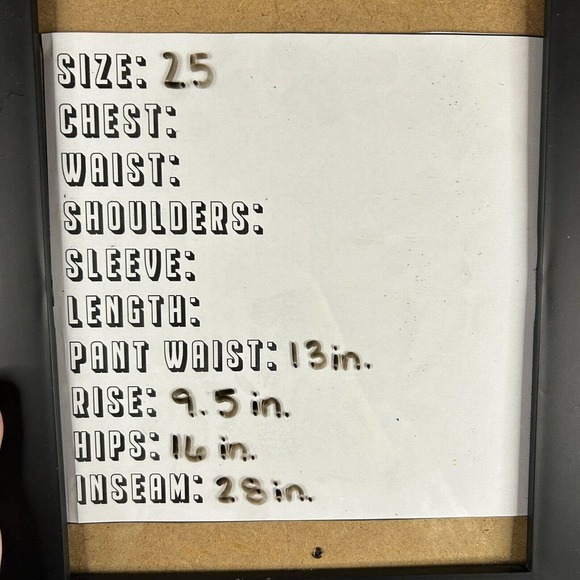 SIZE: 25
CHEST:
WAIST:
SHOULDERS:
SLEEVE:
LENGTH:
PANT WAIST: 13in.
RISE: 9.5 in.
HIPS: 16 in.
INSEAM: 28in.